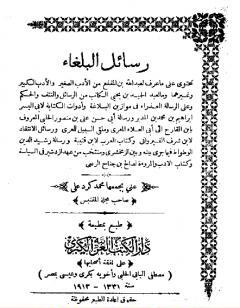 رسائل البلغاء
تحتوي على ما عرف لعبد الله بن المقفع من الأدب الصغير والأدب الكبير
وغيرهما وما لعبد الحميد بن يحيى الكاتب من الرسائل والنتف والحكم
وعلى الرسالة العذراء في موازين البلاغة وأدوات الكتابة لأبي اليسر
إبراهيم بن محمد بن المدبر ورسالة أبي الحسن علي بن منصور الحلبي المعروف
بابن القارح الى أبي العلاء المعري وملقى السبيل للمعري ورسائل الانتقاد
لابن شرف القيرواني وكتاب العرب لابن قتيبة ورسالة رشيد الدين
الوطواط فيما جرى بينه وبين الزمخشري ومنتخب من عهد أزدشير في السياسة
وكتاب الأدب والمروءة لصالح بن جناح الربعي
عني بجمعها محمد كرد علي
صاحب مجلة المقتبس
طبع بمطبعة
دار الكتب العربية الكبرى
على نفقة أصحابها
(مصطفى البابي الحلبي وأخويه بكري وعيسى بمصر)
سنة ١٣٣١ هـ – ١٩١٣ م
حقوق إعادة الطبع محفوظة